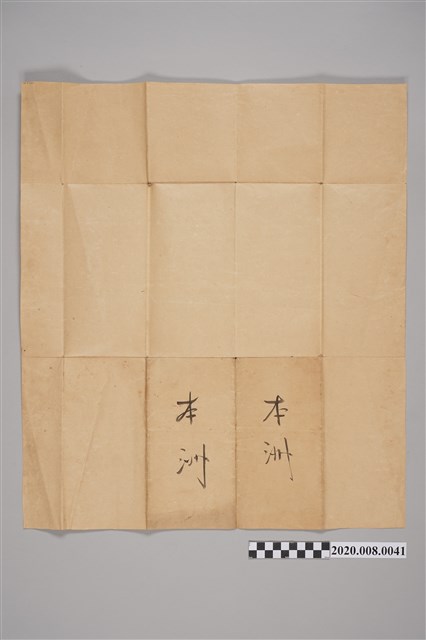 本洲
本洲
2020.008.0041